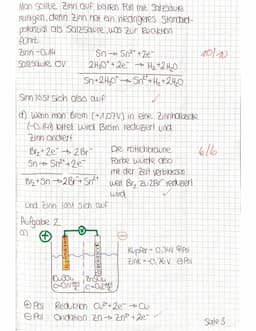 Man sollte Zinn auf keinen Fall mit Salzsäure
reinigen, denn Zinn hat ein niedrigeres Standard-
potenzial als Salzsäure, was zur Reaktion
führt.
Zinn -0,14
Salzsäure 0V
Sn → Sn²⁺ + 2e⁻
2H₃O⁺ + 2e⁻ → H₂ + 2H₂O
Sn + 2H₃O⁺ → Sn²⁺ + H₂ + 2H₂O
10/10
Sinn löst sich also auf
d) Wenn man Brom (+1,07V) in eine Zinnhalogenide
(-0,14V) leitet wird Brom reduziert und
Zinn oxidiert
Br₂ + 2e⁻ → 2Br⁻
Sn → Sn²⁺ + 2e⁻
Br₂ + Sn → 2Br⁻ + Sn²⁺
Die rötlichbraune
Farbe würde also
mit der Zeit verblassen
weil Br₂ zu 2Br⁻ reduziert
wird
6/6
und Zinn löst sich auf
Aufgabe 2
a)
+
-
CuSO₄
ZnSO₄
Kupfer = 0,34V ⊕Pol
Zink = -0,76V ⊖Pol
⊕ Pol Reduktion Cu²⁺ + 2e⁻ → Cu
⊖ Pol Oxidation Zn → Zn²⁺ + 2e⁻
Seite 3